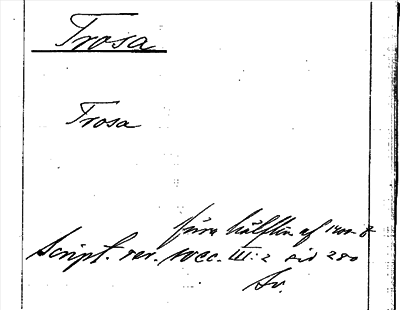 Trosa
Trosa
förra hälften af 1400-t.
Script. rer. svec. III:2 sid 280
Sv.